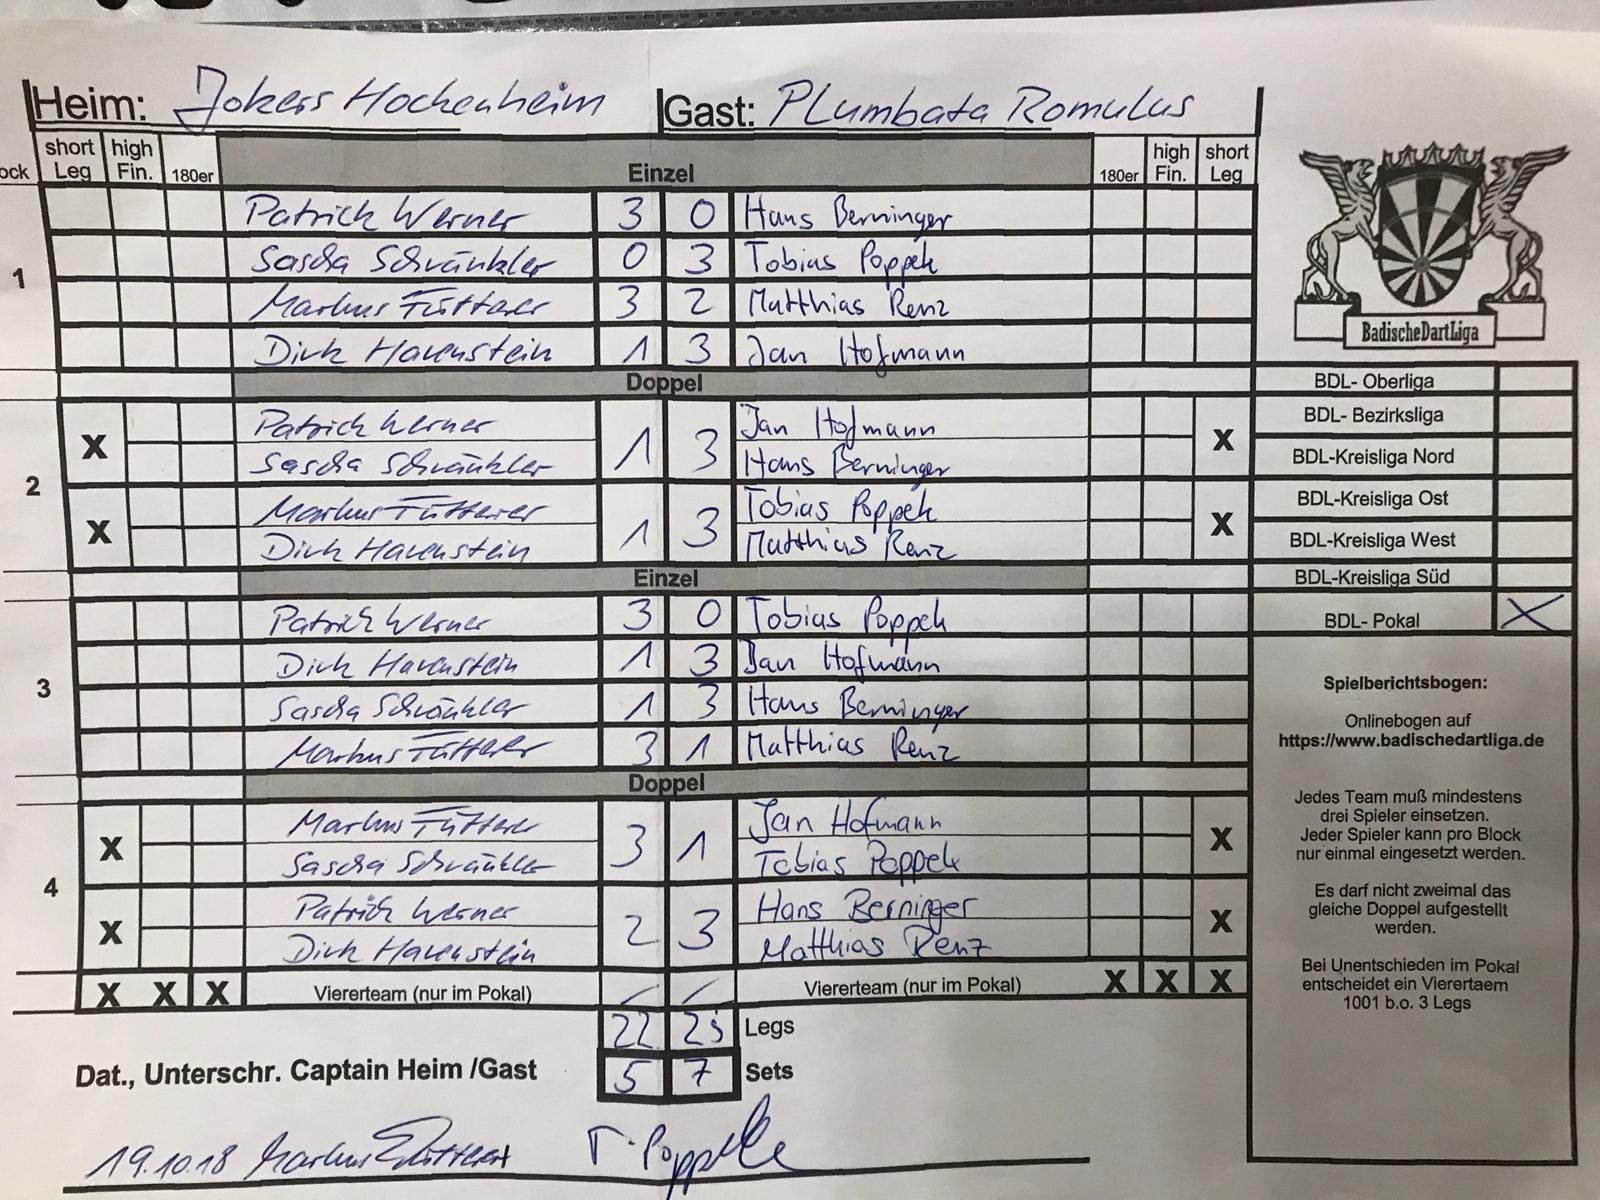 Heim: Jokers Hockenheim Gast: Plumbata Romulus
ock short Leg high Fin. 180er Einzel 180er high Fin. short Leg
1
Patrick Werner 3 0 Hans Berninger
Sascha Schränkler 0 3 Tobias Poppek
Markus Fütterer 3 2 Matthias Renz
Dirk Havenstein 1 3 Jan Hofmann
Doppel
2
X Patrick Werner 1 3 Jan Hofmann X
Sascha Schränkler Hans Berninger
X Markus Fütterer 1 3 Tobias Poppek X
Dirk Havenstein Matthias Renz
Einzel
3
Patrick Werner 3 0 Tobias Poppek
Dirk Havenstein 1 3 Jan Hofmann
Sascha Schränkler 1 3 Hans Berninger
Markus Fütterer 3 1 Matthias Renz
Doppel
4
X Markus Fütterer 3 1 Jan Hofmann X
Sascha Schränkler Tobias Poppek
X Patrick Werner 2 3 Hans Berninger X
Dirk Havenstein Matthias Renz
X X X Viererteam (nur im Pokal) Viererteam (nur im Pokal) X X X
22 Legs
Dat., Unterschr. Captain Heim /Gast 5 7 Sets
19.10.18 Markus Fütterer T. Poppek
BadischeDartLiga
BDL- Oberliga
BDL- Bezirksliga
BDL-Kreisliga Nord
BDL-Kreisliga Ost
BDL-Kreisliga West
BDL-Kreisliga Süd
BDL- Pokal X
Spielberichtsbogen:
Onlinebogen auf
https://www.badischedartliga.de
Jedes Team muß mindestens
drei Spieler einsetzen.
Jeder Spieler kann pro Block
nur einmal eingesetzt werden.
Es darf nicht zweimal das
gleiche Doppel aufgestellt
werden.
Bei Unentschieden im Pokal
entscheidet ein Vierertaem
1001 b.o. 3 Legs